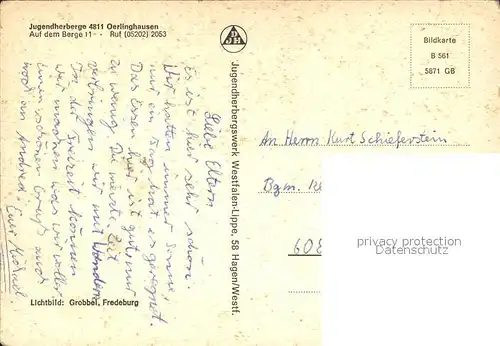 Jugendherberge 4811 Oerlinghausen
Auf dem Berge 11 · Ruf (05202) 2053
Liebe Eltern
Es ist hier sehr schön.
Wir hatten immer Sonne,
nur ein Tag hat es geregnet.
Das Essen hier ist gut, nur
zu wenig. Die meiste Zeit
verbringen wir mit Wandern
In der Freizeit können
wir machen was wir wollen
Einen schönen Gruß auch
noch an Andrea. Euer
Lichtbild: Grobbel, Fredeburg
Jugendherbergswerk Westfalen-Lippe, 58 Hagen/Westf.
DJH
Bildkarte
B 561
5871 GB
An Herrn Kurt Schieferstein
Bgm.
608
privacy protection
Datenschutz